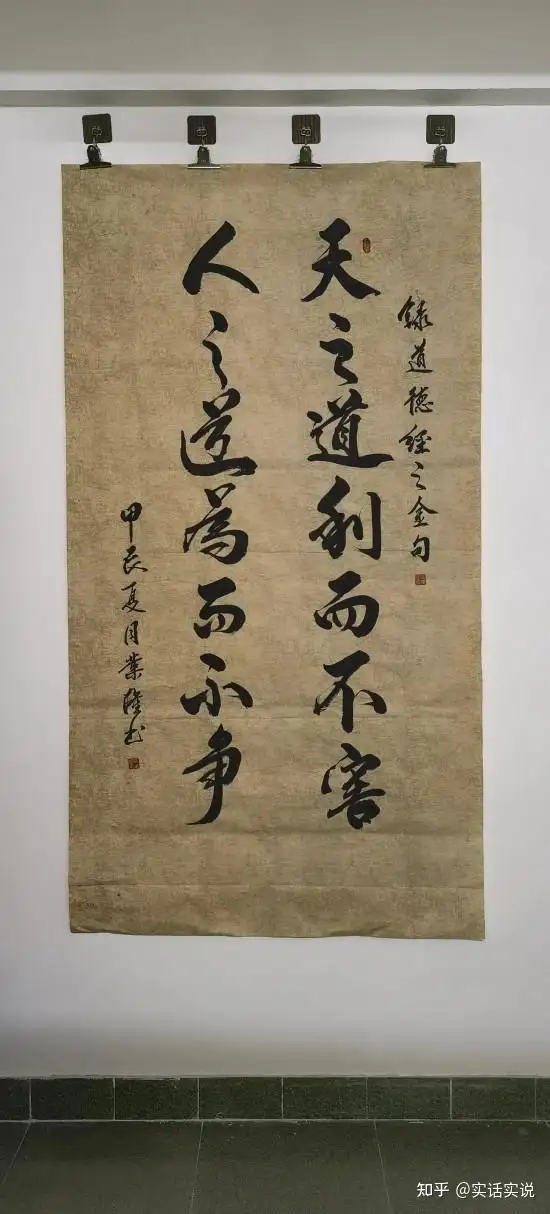 錄道德經之金句
天之道利而不害
人之道為而不争
甲辰夏月業隆书
知乎 @实话实说